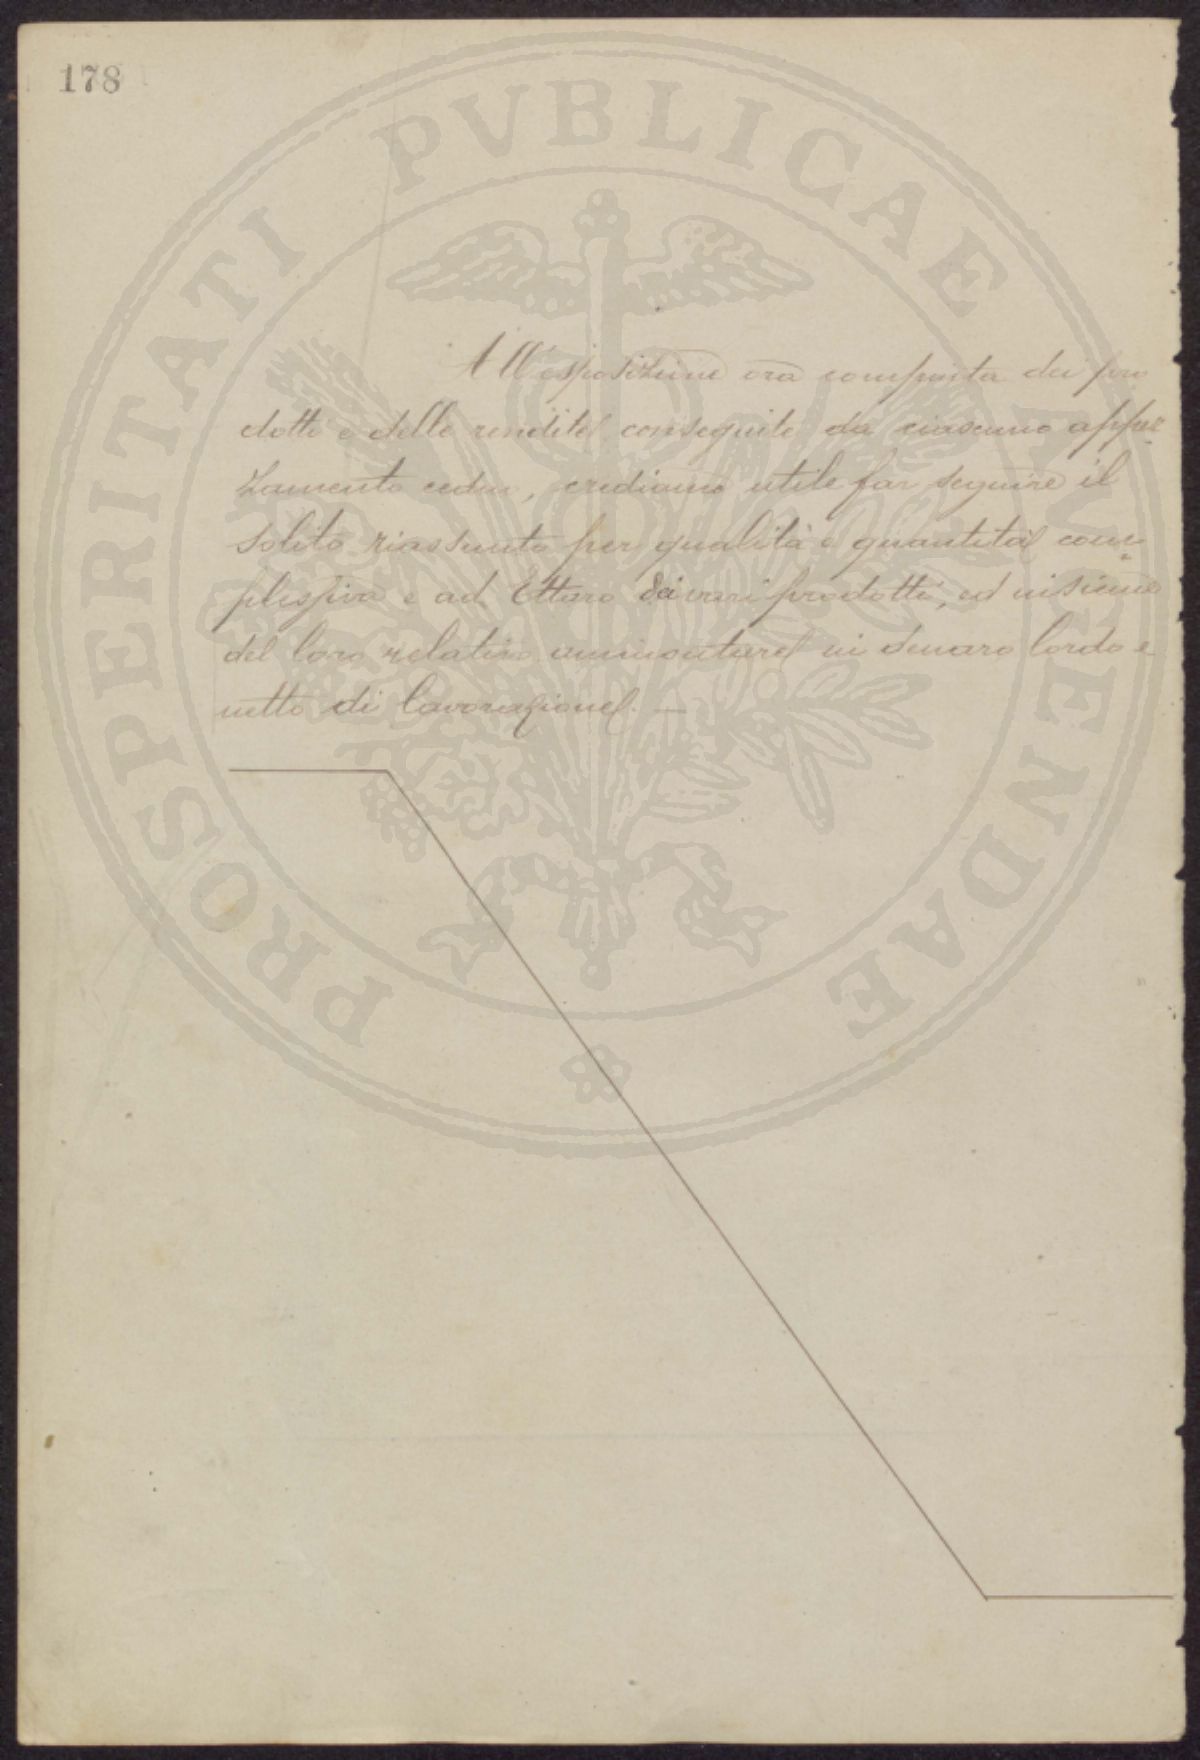 178
PROSPERITATI PVBLICAE AVGENDAE
All'esposizione ora compiuta dei pro
dotti e delle rendite conseguite da ciascuno appez
zamento ceduo, crediamo utile far seguire il
solito riassunto per qualità e quantità com
plessiva e ad Ettaro dei vari prodotti, ed insieme
del loro relativo ammontare in denaro lordo e
netto di lavorazione. —